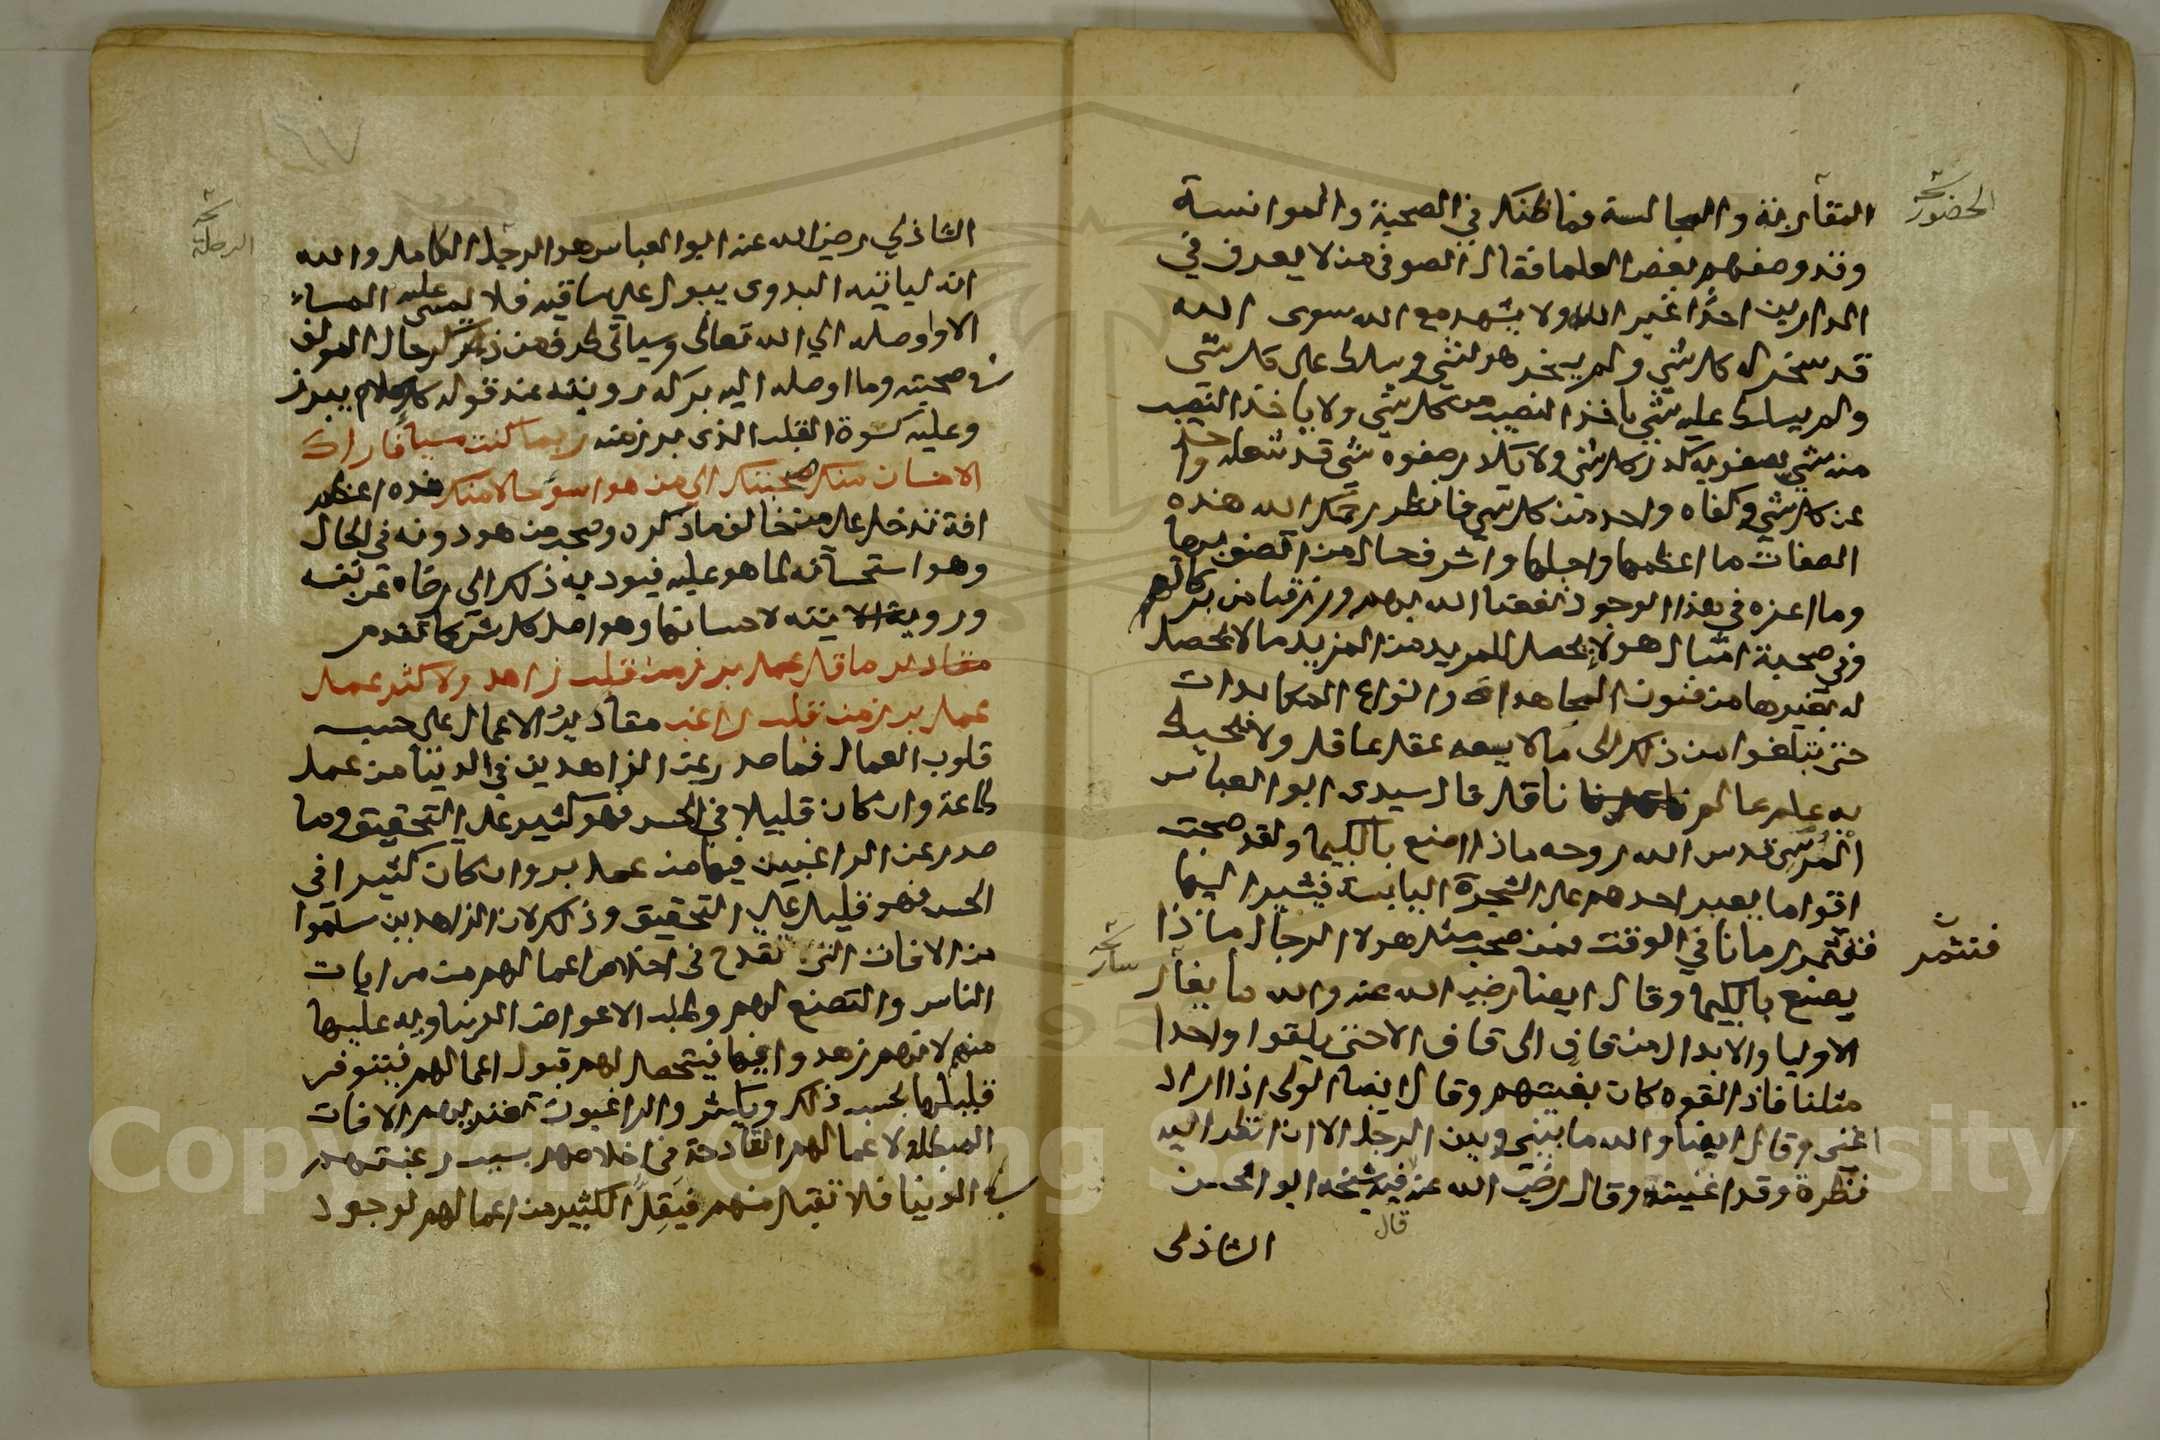 المقاربة والمجالسة فما ظنك في الصحبة والموانسة
الحضور
وقد وصفهم بعض العلما فقال الصوفي من لا يعرف في
الدارين احدا غير الله ولا يشهد مع الله سوى الله
قد سخر له كل شي ولم يسخر هو لشي وسلط على كل شي
ولم يسلط عليه شي ياخذ النصيب من كل شي ولا ياخذ النصيب
منه شي يصفو به كدر كل شي ولا يكدر صفوه شي قد شغله واحد
عن كل شي وكفاه واحد من كل شي فانظر رحمك الله هذه
الصفات ما اعظمها واجلها واشرف حال من اتصف بها
وما اعزه في هذا الوجود نفعنا الله بهم ورزقنا من بركاتهم
وفي صحبة امثال هولا يحصل للمريد من المزيد ما لا يحصل
له بغيرها من فنون المجاهدات وانواع المكابدات
حتى يبلغوا من ذلك الى ما لا يسعه عقل عاقل ولا يحيط
به علم عالم ناقل قال سيدي ابو العباس
المرسي قدس الله روحه ماذا اصنع بالكيما ولقد صحبت
اقواما يعبر احدهم على الشجرة اليابسة فيشير اليها
فتثمر رمانا في الوقت فمن صحب مثل هولا الرجال ماذا
فتثمر
يصنع بالكيما وقال ايضا رضي الله عنه والله ما
سار
الاوليا والابدال من قاف الى قاف الا حتى يلقوا واحدا
مثلنا فاذا لقوه كان بغيتهم وقال ايضا الولي اذا اراد
اغنى وقال ايضا والله ما بيني وبين الرجل الا ان انظر اليه
نظرة وقد اغنيته وقال رضي الله عنه فيه شيخه ابو الحسن
قال
الشاذلي
الشاذلي رضي الله عنه ابو العباس هو الرجل الكامل والله
الرجل
انه لياتيه البدوي يبول على ساقيه فلا يمسى عليه المساء
الا واوصله الى الله تعالى وسياتي طرف من ذكر رجال المولف
في صحبته وما اوصله اليه بركة رويته عند قوله كل كلام يبرز
وعليه كسوة القلب الذي برز منه ربما كنت مسيا فاراك
الاحسان منك صحبتك الى من هو اسوء حالا منك هذه اعظم
افة تدخل على من خالف ما ذكره وصحب من هو دونه في الحال
وهو استحسانه لما هو عليه فيوديه ذلك الى رضاه عن نفسه
ورويته لاحسانها وهو اصل كل شر كما تقدم
ما قل عمل برز من قلب زاهد ولا كثر عمل
عمل برز من قلب راغب مقادير الاعمال على حسب
قلوب العمال فما صدر عن الزاهدين في الدنيا من عمل
طاعة وان كان قليلا في الحس فهو كثير على التحقيق وما
صدر عن الراغبين فيها من عمل بر وان كان كثيرا في
الحس فهو قليل على التحقيق وذلك لان الزاهدين سلموا
من الافات التي تقدح في اخلاص اعمالهم من مرايات
الناس والتصنع لهم وطلب الاعواض الدنياوية عليها
منهم لانهم زهدوا فيها فيتحصل لهم قبول اعمالهم فيتوفر
قليلها بحسب ذلك ويكثر والراغبون تعتريهم الافات
المبطلة لاعمالهم القادحة في اخلاصهم بسبب رغبتهم
في الدنيا فلا تقبل منهم فيقل الكثير من اعمالهم لوجود
Copyright © King Saud University